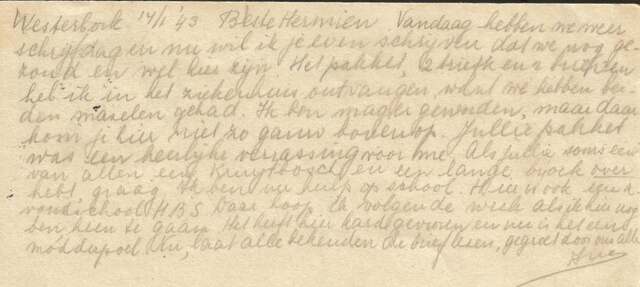 Westerbork 14/1 '43 Beste Hermien Vandaag hebben we weer
schrijfdag en nu wil ik je even schrijven dat we nog ge
zond en wel hier zijn. Het pakket, 2 briefk en 2 brieven
heb ik in het ziekenhuis ontvangen, want we hebben bei
den mazelen gehad. Ik ben mager geworden, maar daar
kom je hier niet zo gauw bovenop. Jullie pakket
was een heerlijke verrassing voor me. Als jullie soms een
van allen een en een lange broek over
hebt graag. Ik ben nu hulp op school. Hier is ook een
avondschool H.B.S. Daar hoop ik volgende week als ik hier nog
ben heen te gaan. Het heeft hier hard gevroren en nu is het een
modderpoel. Nu, laat alle bekenden de brief lezen, gegroet door ons alle